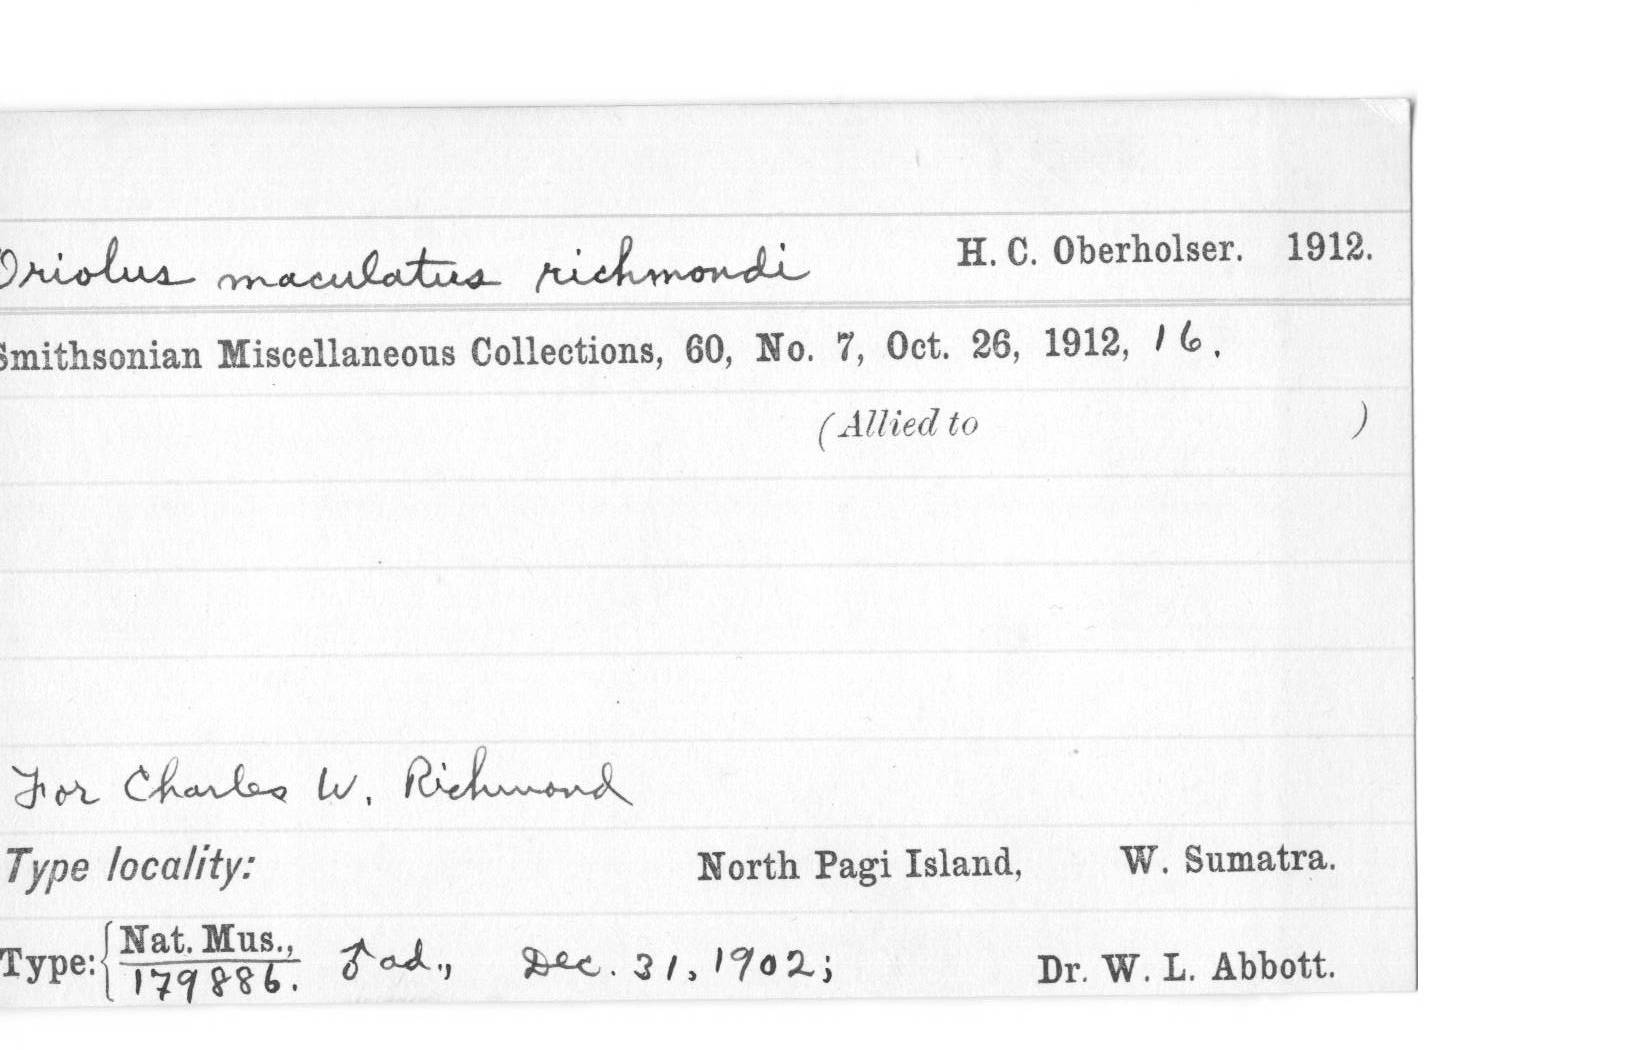 Oriolus maculatus richmondi H. C. Oberholser. 1912.
Smithsonian Miscellaneous Collections, 60, No. 7, Oct. 26, 1912, 16.
(Allied to )
For Charles W. Richmond
Type locality: North Pagi Island, W. Sumatra.
Type: { Nat. Mus., 179886. ♂ ad., Dec. 31, 1902; Dr. W. L. Abbott.